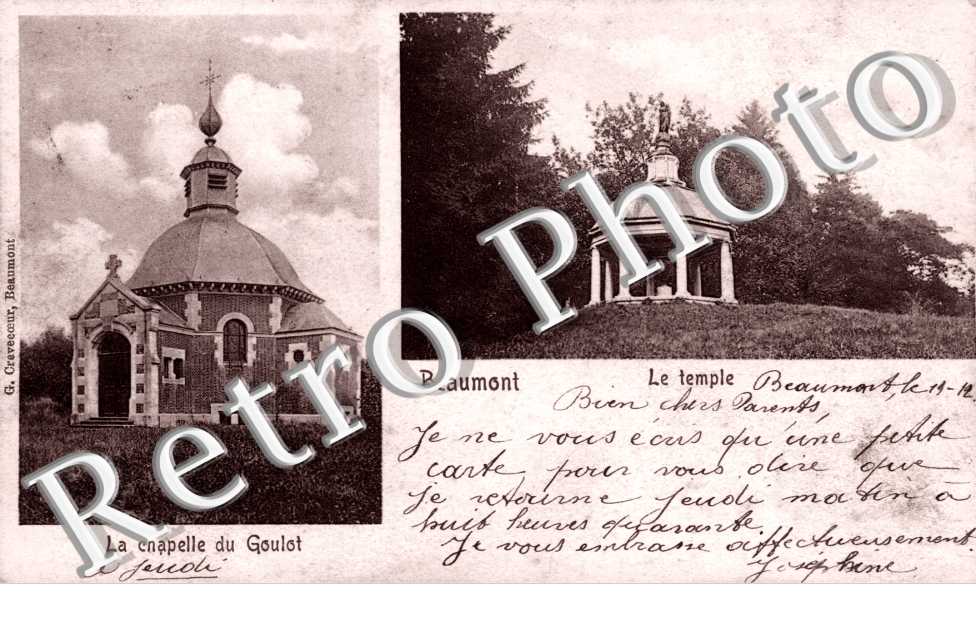 G. Cravecœur, Beaumont
La chapelle du Goulot
Beaumont
Le temple
Beaumont, le 19-12
Bien chers Parents,
Je ne vous écris qu'une petite
carte pour vous dire que
Je retourne Jeudi matin à
huit heures quarante.
Je vous embrasse affectueusement.
Joséphine
à Jeudi
Retro Photo